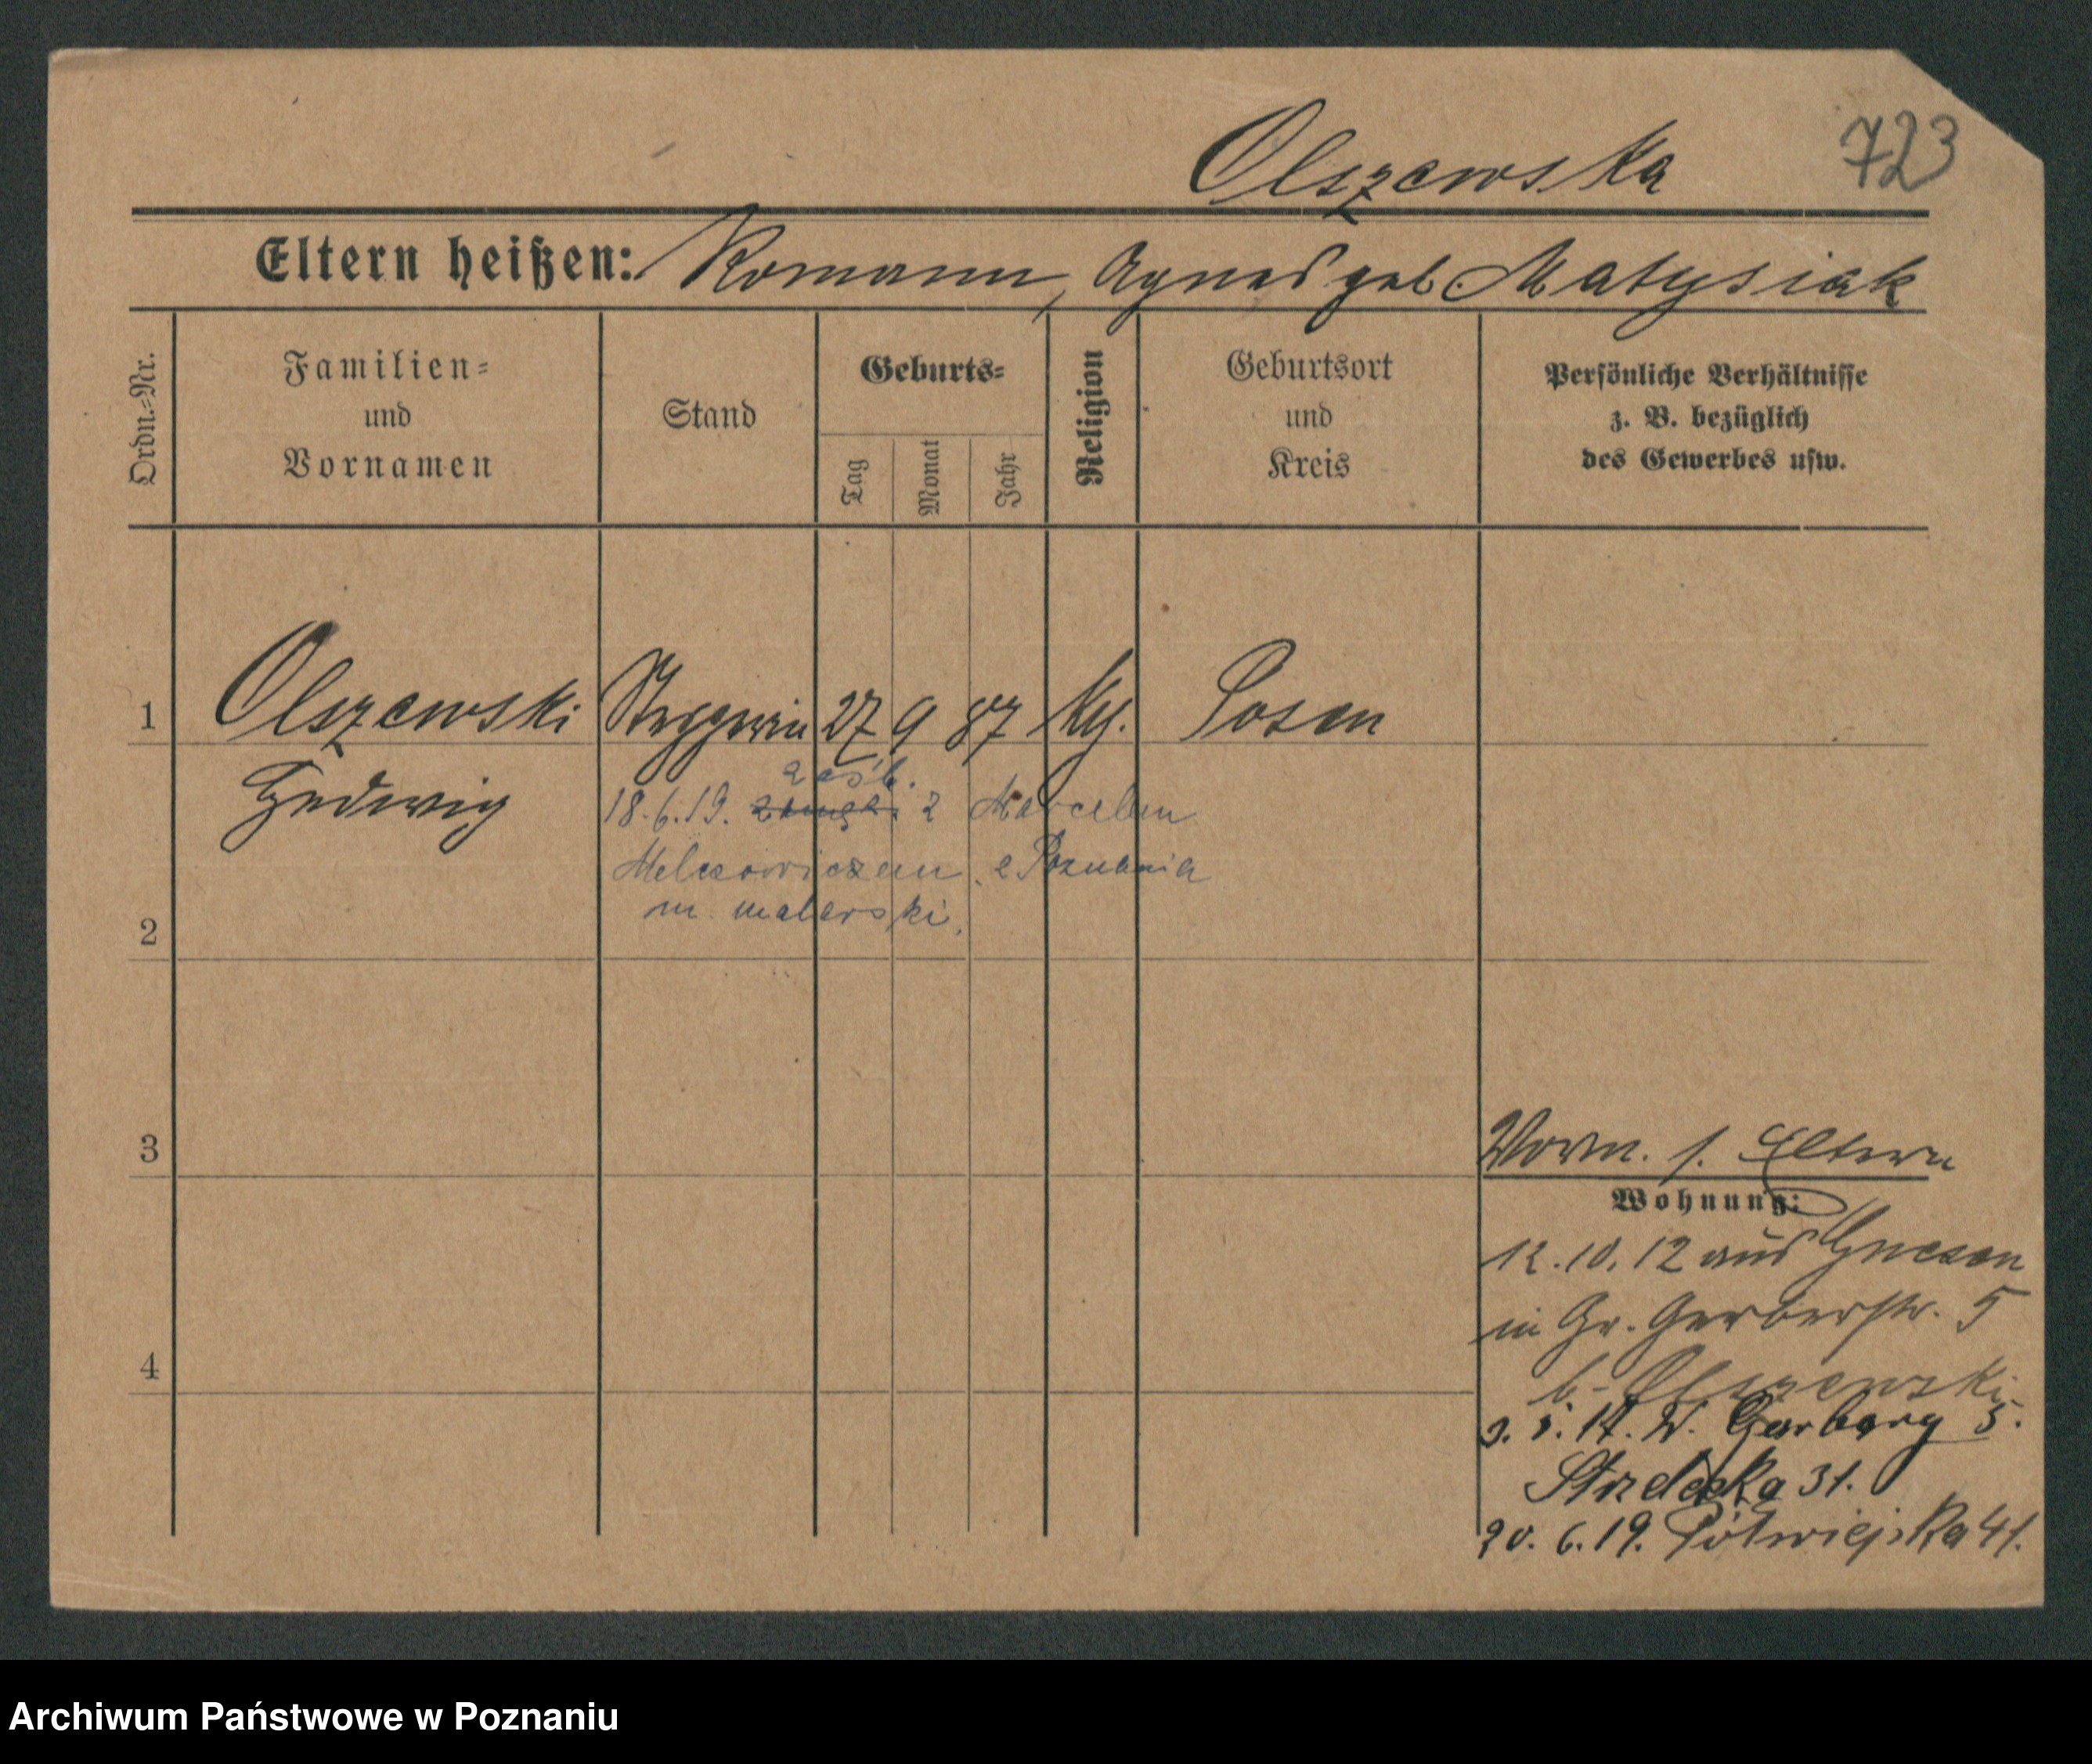 Olszewska
723
Eltern heißen: Romann, Agnes geb. Matysiak
Ordn.-Nr.
Familien-
und
Vornamen
Stand
Geburts-
Tag
Monat
Jahr
Religion
Geburtsort
und
Kreis
Persönliche Verhältnisse
z. B. bezüglich
des Gewerbes usw.
1 Olszewski 27 9 87 Posen
Hedwig
zaśl.
18.6.19. z Marcelim
z Poznania
2 m. malarski.
3
Vorm. s. Eltern
Wohnung:
12.10.12 aus Gnesen
in Gr. Gerberstr. 5
4
b. Olszewski
W. Garbary 5.
Strzelecka 31.
20.6.19. Półwiejska 41.
Archiwum Państwowe w Poznaniu